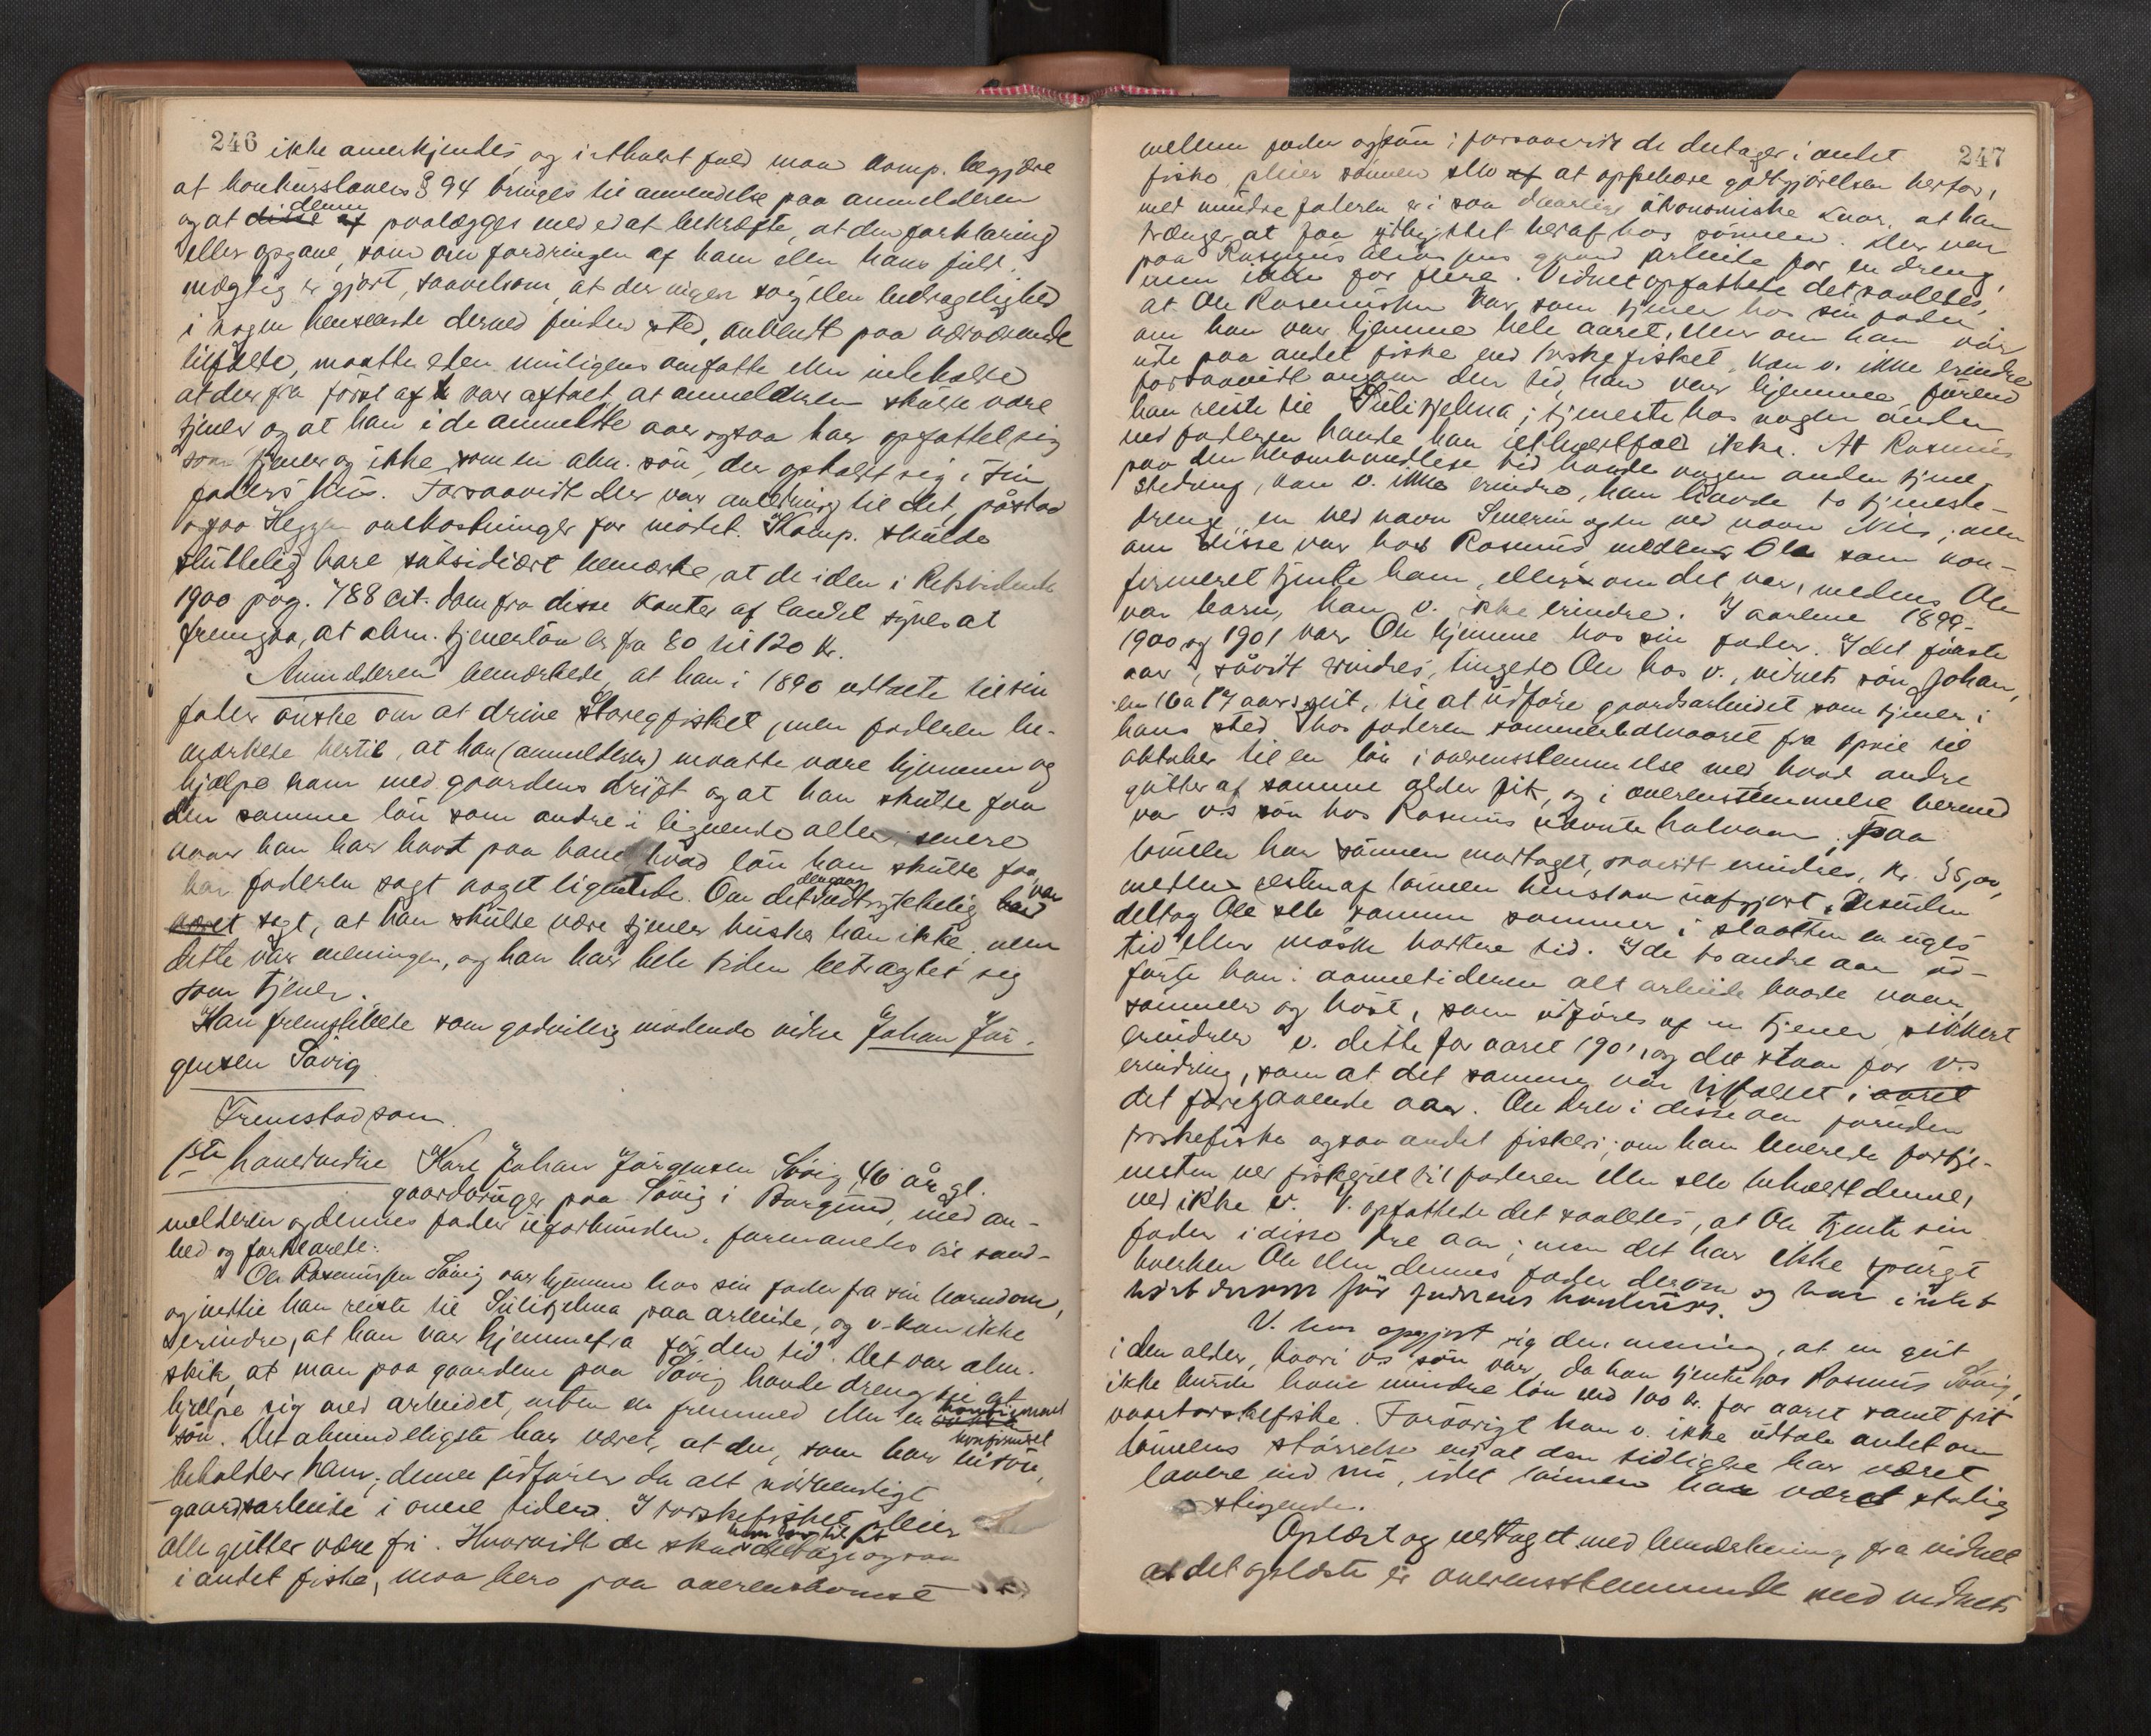 246
ikke anerkjendes, og i ethvert fald maa komp. begjære
at konkurslovens § 94 bringes til anvendelse paa anmelderen
og at disse af denne paalægges med ed at bekræfte, at den forklaring
eller opgave, som om fordringen af ham eller hans fuld-
mægtig er gjort, saavelsom at der ingen svig eller bedragelighed
i nogen henseende derved finder sted, anvendt paa nærværende
tilfælde, maatte eden nemligen omfatte eller indeholde
at der fra først af var aftalt, at anmelderen skulde være
tjener og at han i de anmeldte aar ogsaa har opfattet sig
som tjener og ikke som en alm. søn, der opholdt sig i sin
faders hus. Forsaavidt der var anledning til det, påstod
ogsaa Heggen omkostninger for mødet. Komp. skulde
sluttelig bare subsidiært bemærke, at de i den i Retstidende
1900 pag. 788 cit. dom fra disse kanter af landet synes at
fremgaa, at alm. tjenerløn er fra 80 til 120 kr.
Anmelderen bemærkede, at han i 1896 udtalte til sin
fader ønske om at drive Storegfisket, men faderen be-
mærkede hertil, at han (anmelderen) maatte være hjemme og
hjælpe ham med gaardens drift og at han skulde faa
den samme løn som andre i lignende alder; senere
naar han har havt paa bane hvad løn han skulde faa,
har faderen sagt noget lignende. Om det dengang udtrykkelig har var
været sagt, at han skulde være tjener husker han ikke, men
dette var meningen, og han har hele tiden betragtet sig
som tjener.
Han fremstillede som godvillig mødende vidne Johan Jør-
gensen Søvig
Fremstod som
1ste hovedvidne Karl Johan Jørgensen Søvig, 46 år gl.
gaardbruger paa Søvig i Borgund, med an-
melderen og dennes fader uforbunden, formanedes til sand-
hed og forklarede:
Ole Rasmussen Søvig var hjemme hos sin fader fra sin barndom,
og indtil han reiste til Sulitjelma paa arbeide, og v. kan ikke
erindre, at han var hjemmefra før den tid. Det var alm.
skik, at man paa gaardene paa Søvig havde dreng til at
hjælpe sig med arbeidet, enten en fremmed eller en voksen konfirmeret
søn. Det almindeligste har været, at den, som har en konfirmeret søn,
beholder ham; denne udfører da alt nødvendigt
gaardsarbeide i onnetiden. I torskefisket pleier
alle gutter være fri. Hvorvidt de skal have lov til at deltage ogsaa
i andet fiske, maa bero paa overenskomst
247
mellem fader og søn; forsaavidt de deltager i andet
fiske, pleier sønnen selv af at oppebære godtgjørelsen herfor,
med mindre faderen er i saa daarlige økonomiske kaar, at han
trænger at faa udbyttet heraf hos sønnen. Der var
paa Rasmus gaard arbeide for en dreng,
men ikke for flere. Vidnet opfattede det saaledes,
at Ole Rasmussen var som tjener hos sin fader;
om han var hjemme hele aaret, eller om han var
ude paa andet fiske end torskefisket, kan v. ikke erindre
forsaavidt angaar den tid, han var hjemme, førend
han reiste til Sulitjelma; tjeneste hos nogen anden
end faderen havde han ialfald ikke. At Rasmus
paa den omhandlede tid havde nogen anden tjene-
stedreng, kan v. ikke erindre, han havde to tjeneste-
drenge, en ved navn Severin og en ved navn Nils; men
om disse var hos Rasmus, medens Ole som kon-
firmeret tjente ham, eller om det var, medens Ole
var barn, kan v. ikke erindre. I aarene 1899-
1900 og 1901 var Ole hjemme hos sin fader. I det første
aar, såvidt erindres, tingede Ole hos v., vidnets søn Johan,
en 16 a 17 aars gut, til at udføre gaardsarbeidet som tjener i
hans sted hos faderen sommerhalvaaret fra april til
oktober til en løn i overensstemmelse med hvad andre
gutter af samme alder fik, og i overensstemmelse hermed
var v.s søn hos Rasmus nævnte halvaar; paa
lønnen har sønnen modtaget, saavidt erindres, kr. 35,00,
medens resten af lønnen henstaar uafgjort. Desuden
deltog Ole selv samme sommer i slaatten en uges
tid eller måske kortere tid. I de to andre aar ud-
førte han i aannetiderne alt arbeide baade vaar,
sommer og høst, som udføres af en tjener, sikkert
erindrer v. dette for aaret 1901, og det staar for v.s
erindring, som at det samme var tilfældet i aaret
det foregaaende aar. Ole drev i disse aar foruden
torskefiske ogsaa andet fiskeri; om han leverede fortje-
nesten ved fiskeriet til faderen eller selv beholdt denne,
ved ikke v. V. opfattede det saaledes, at Ole tjente sin
fader i disse tre aar; men det har ikke spurgt
hverken Ole eller dennes fader derom og har intet
hørt derom før faderens konkurs.
V. har opgjort sig den mening, at en gut
i den alder, hvori v.s søn var, da han tjente hos Rasmus Søvig,
ikke burde have mindre løn end 100 kr. for aaret samt frit
vaartorskefiske. Forøvrigt kan v. ikke udtale andet om
lønnens størrelse end at den tidligere har været
lavere end nu, idet lønnen har været stadig
stigende.
Oplæst og vedtaget med bemærkning fra vidnet
at det oplæste er overensstemmende med vidnets